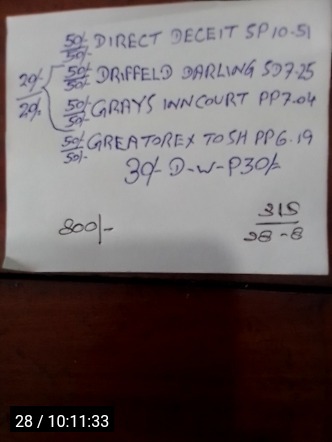 50/- DIRECT DECEIT SP 10-51
50/-
50/- DRIFFELD DARLING SD7.25
50/-
20/-
20/-
50/- GRAYS INNCOURT PP7.04
50/-
50/- GREATOREX TOSH PP6.19
50/-
30/- D-W-P30/-
800/-
315
28-8
28 / 10:11:33